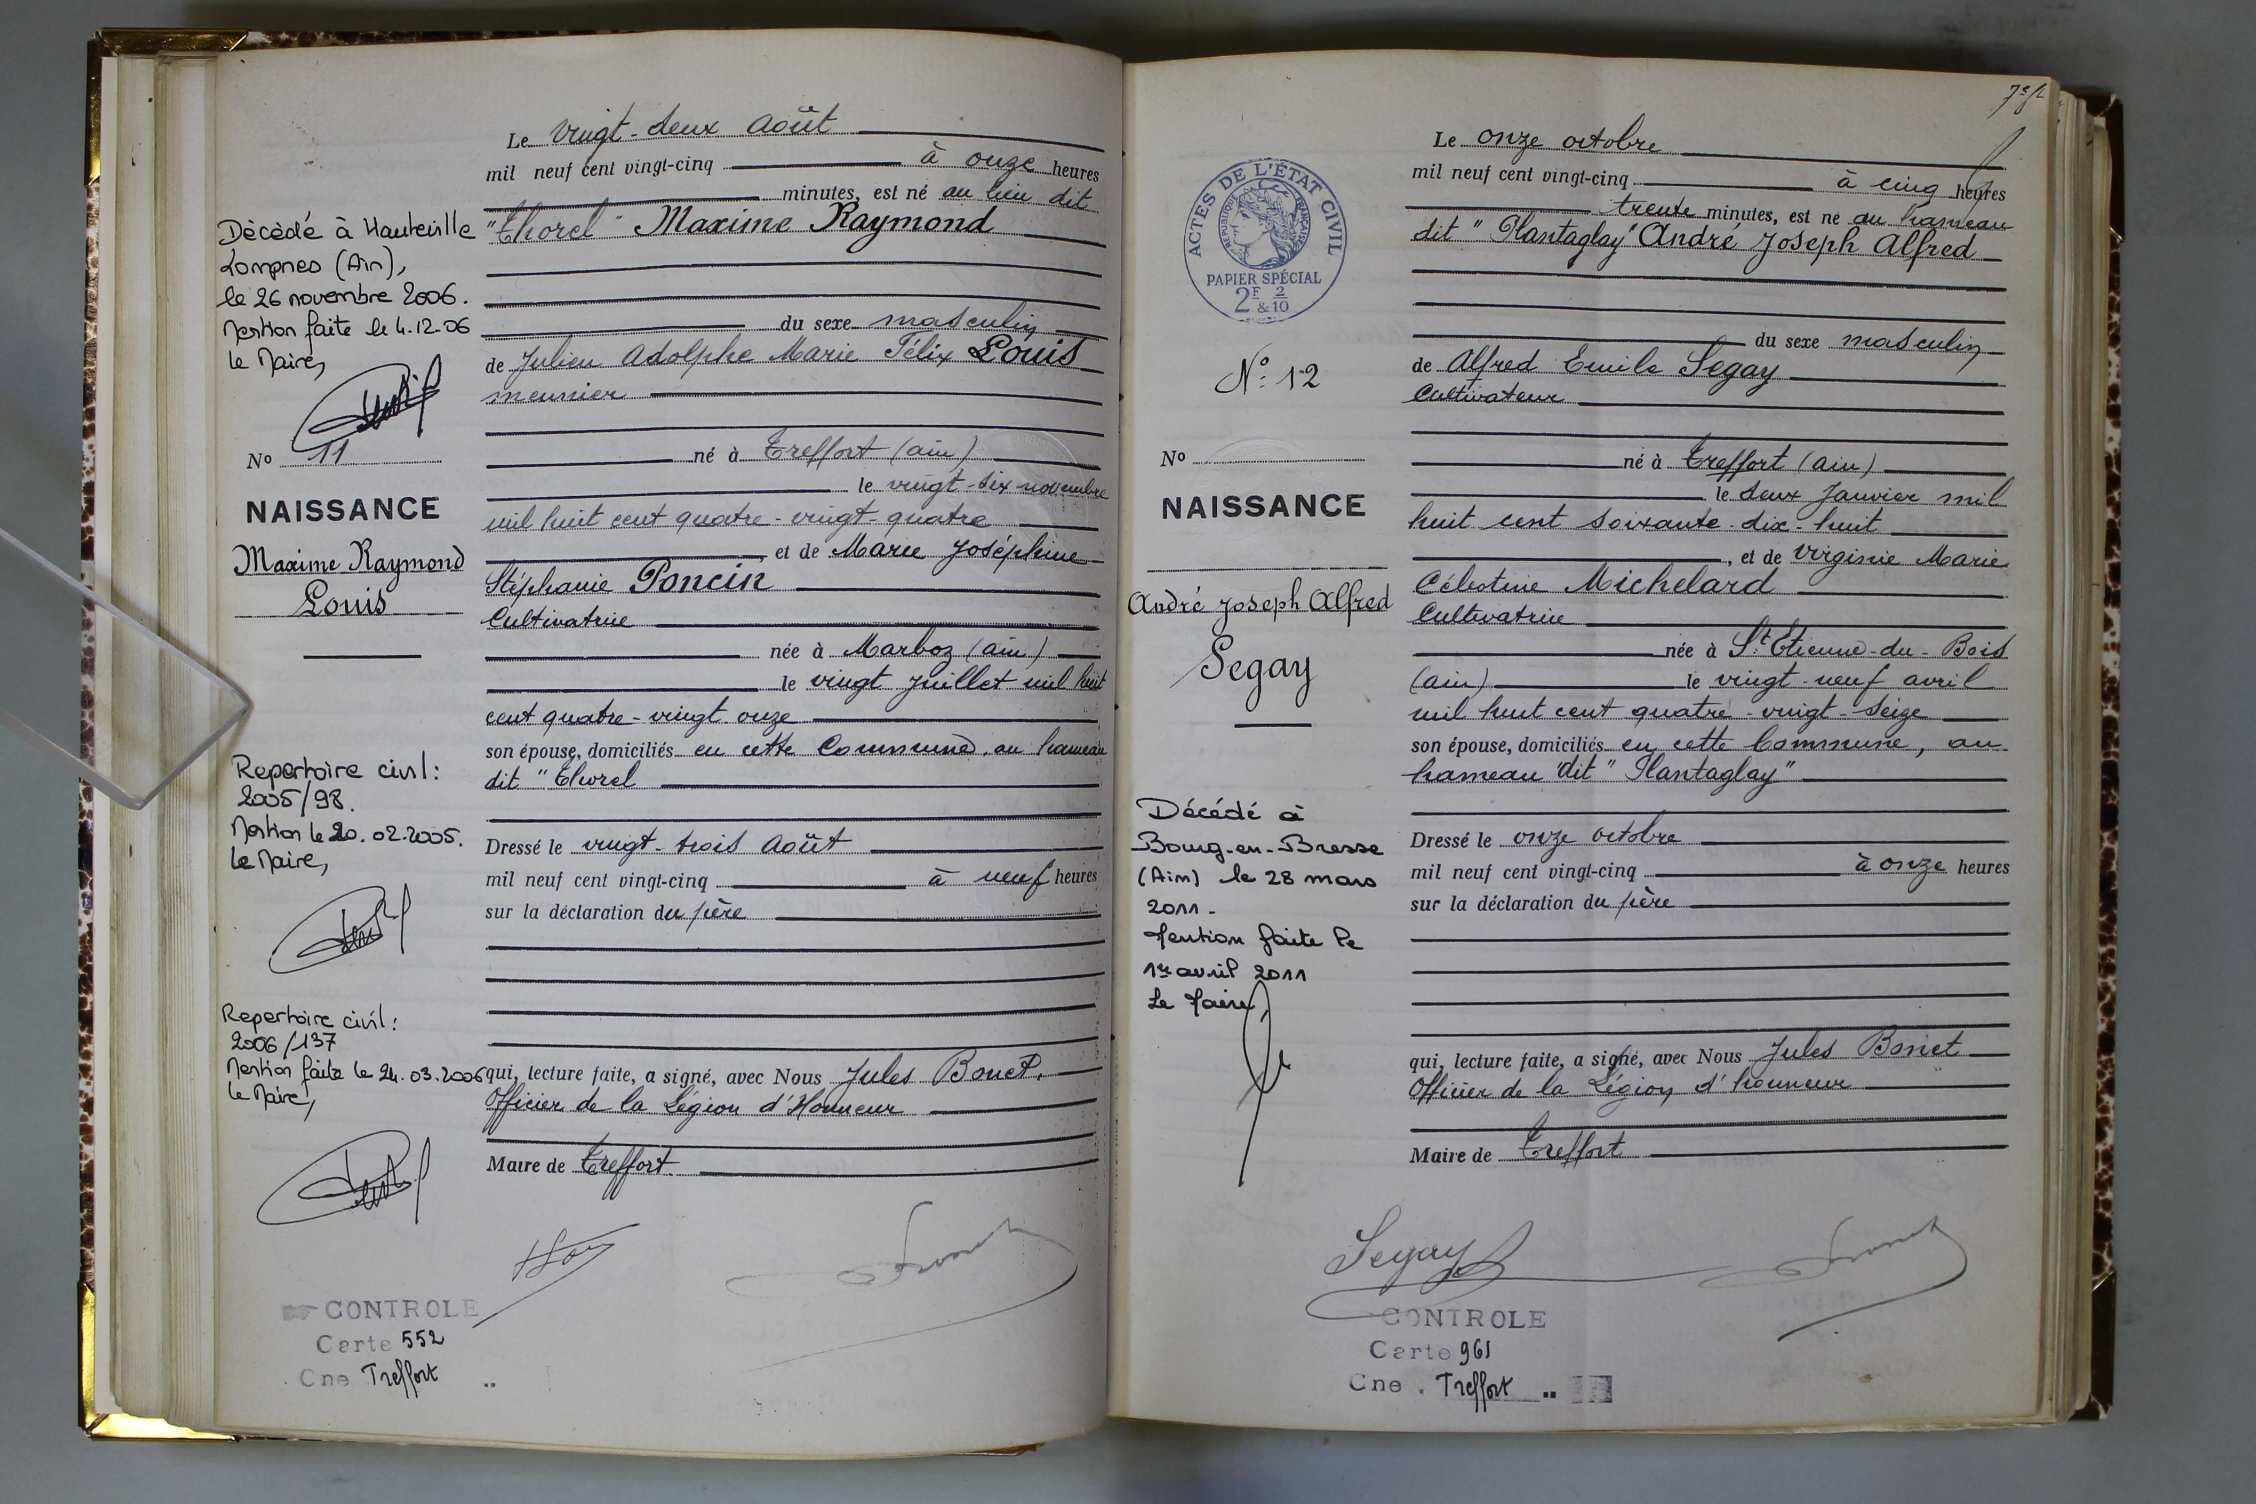 Le vingt-deux Août
mil neuf cent vingt-cinq à onze heures
minutes, est né au lieu dit
"Thorel" Maxime Raymond
du sexe masculin
de Julien Adolphe Marie Félix Louis
meunier
né à Treffort (ain)
le vingt-six novembre
mil huit cent quatre-vingt-quatre
et de Marie Joséphine
Stéphanie Poncin
Cultivatrice
née à Marboz (ain)
le vingt Juillet mil huit
cent quatre-vingt onze
son épouse, domiciliés en cette Commune, au hameau
dit "Thorel
Dressé le vingt-trois Août
mil neuf cent vingt-cinq à neuf heures
sur la déclaration du père
qui, lecture faite, a signé, avec Nous Jules Bonet.
Officier de la Légion d'Honneur
Maire de Treffort
Décédé à Hauteville
Lompnes (Ain),
le 26 novembre 2006.
Mention faite le 4.12.06
le Maire,
No 11
NAISSANCE
Maxime Raymond
Louis
Repertoire civil:
2005/98.
Mention le 20.02.2005.
Le Maire,
Repertoire civil:
2006/137
Mention faite le 24.03.2006
le Maire,
CONTROLE
Carte 552
Cne Treffort
Le onze octobre
mil neuf cent vingt-cinq à cinq heures
trente minutes, est né au hameau
dit "Plantaglay" André Joseph Alfred
du sexe masculin
de Alfred Emile Segay
Cultivateur
né à Treffort (ain)
le deux Janvier mil
huit cent soixante-dix-huit
, et de Virginie Marie
Célestine Michelard
Cultivatrice
née à St. Etienne-du-Bois
(ain) le vingt-neuf avril
mil huit cent quatre-vingt-seize
son épouse, domiciliés en cette Commune, au
hameau "dit "Plantaglay"
Dressé le onze octobre
mil neuf cent vingt-cinq à onze heures
sur la déclaration du père
qui, lecture faite, a signé, avec Nous Jules Bonet
Officier de la Légion d'honneur
Maire de Treffort
ACTES DE L'ÉTAT CIVIL
RÉPUBLIQUE FRANÇAISE
PAPIER SPÉCIAL
2F & 2/10
No. 12
No
NAISSANCE
André Joseph Alfred
Segay
Décédé à
Bourg-en-Bresse
(Ain) le 28 mars
2011-
Mention faite le
1er avril 2011
Le Maire,
Segay
CONTROLE
Carte 961
Cne. Treffort